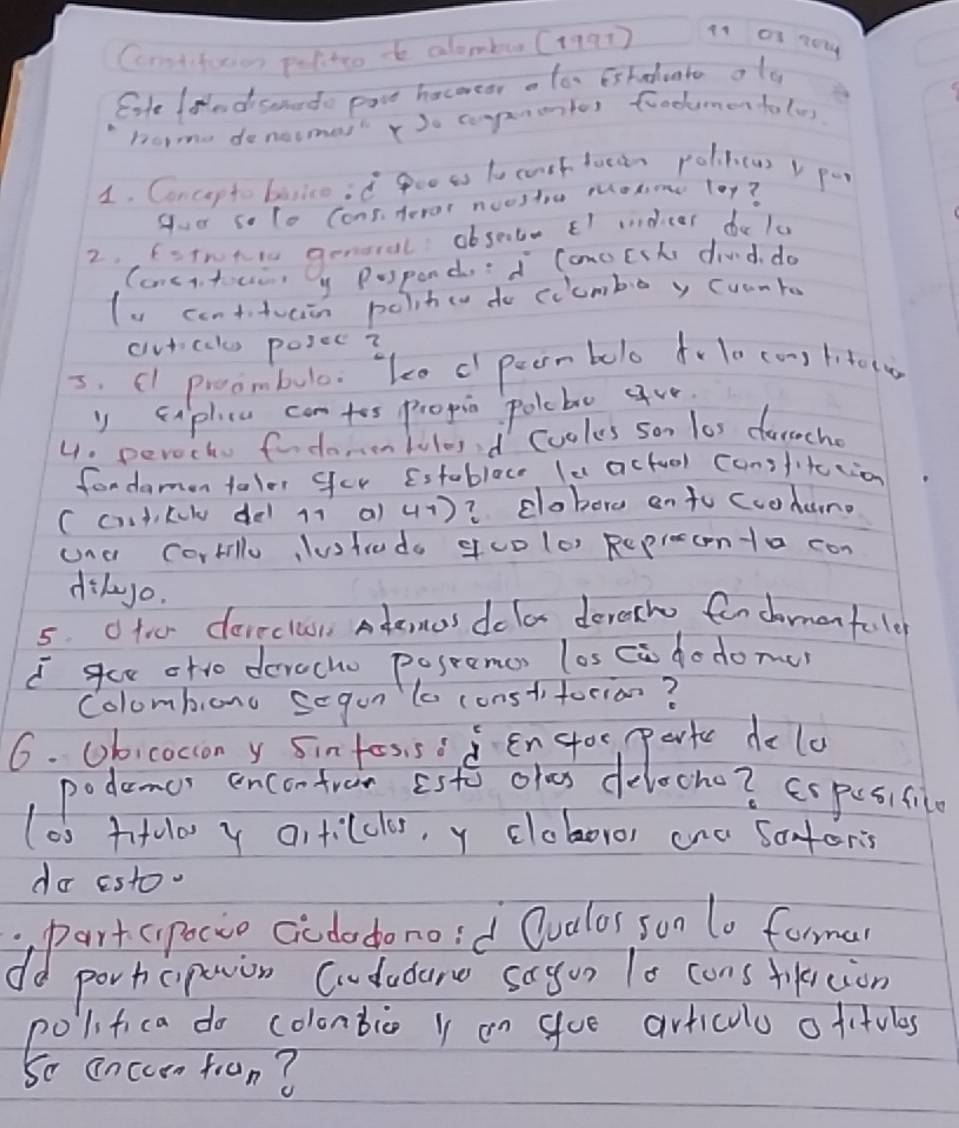 Constitucion politica de colombia (1991) 11 03 2024
Este diseñado para hacercar a los Estudiante a la
"norma de normas" y so componentes fundumentales.
1. Concepto basico: ¿ Que es la constitucion politicas y por
que se le considerar nuestra maxima ley?
2. Estructura general: observa El indices de la
Constitucion y Responde: ¿ Como Esta dividido
la contitucion politica de colombia y cuanto
articulos posee?
3. El preambulo: Lea el preambulo de la constitucion
y explica con tus propia palabra que.
4. Derecho fundamentales ¿ cuales son los derecho
fundamentales que Establece la actual constitucion
(articulo del 11 al 41)? Elabora en tu cuaderno
una cartilla ilustrada que los Representa con
dibujo.
5. Otro derechos Ademas de los derecho fundamentales
¿ que otro derecho poseemos los ciudadomos
colombiano segun la constitucion?
6. Ubicacion y Sintesis: ¿ En que parte de la
podemos encontrar Esto otros derecho? Espesifica
los titulos y articulos, y elaborar una
de esto.
. participacio ciudadano: ¿ Cuales son la formas
de participacion Ciudadana segun la constitucion
politica de colombia y en que articulo o titulos
se encuentran?